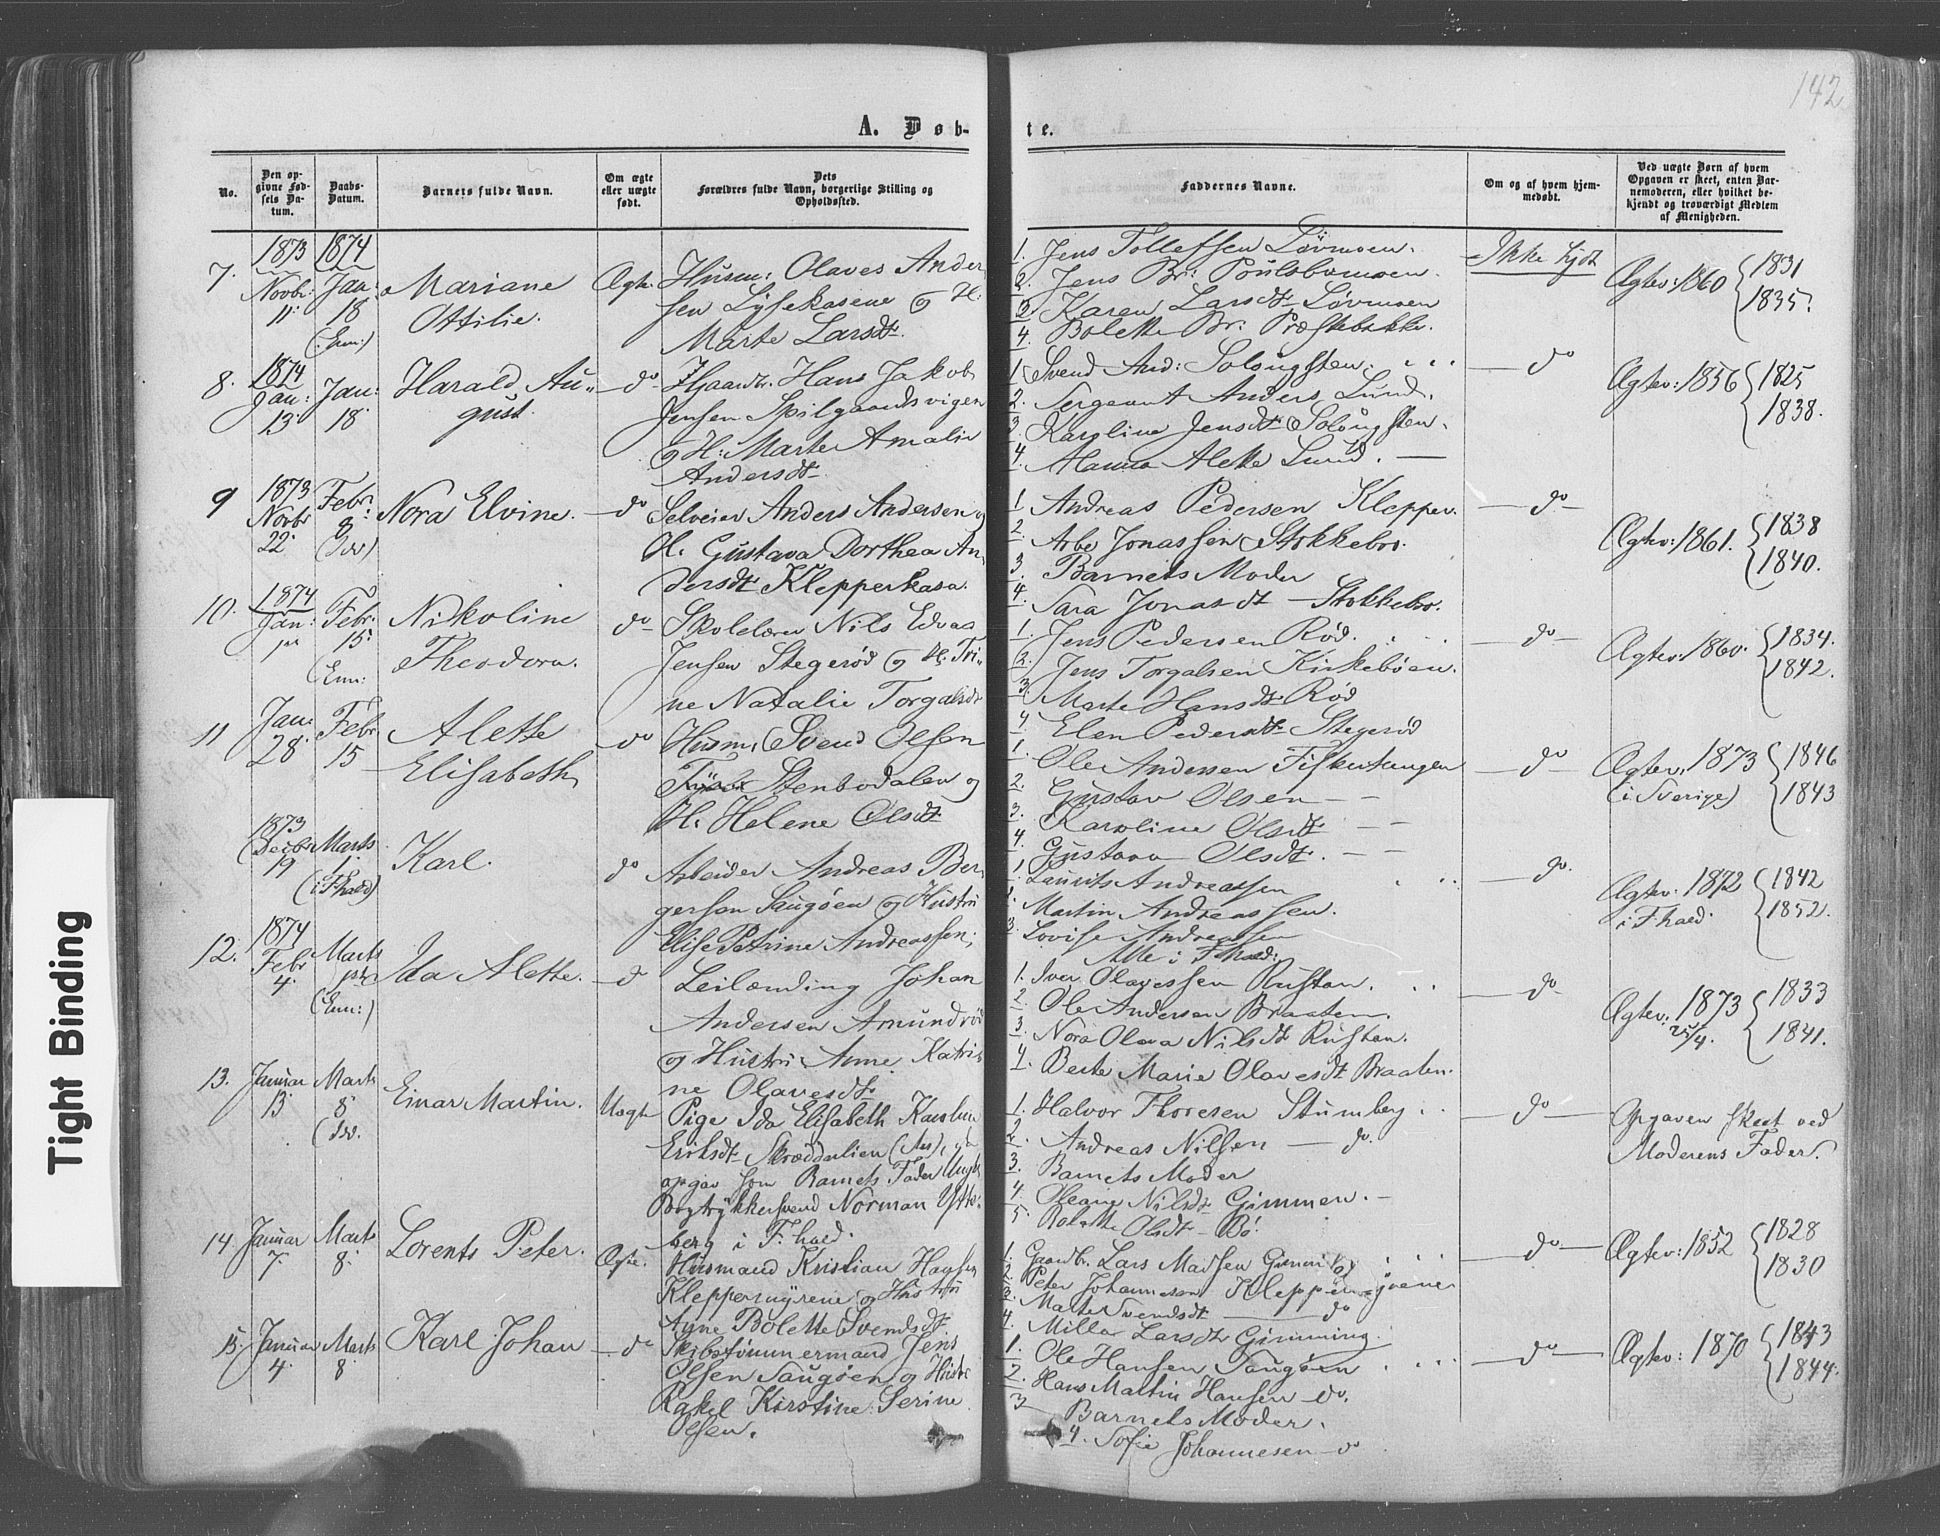 142
A. Døb-
te.
No.
Den op-
givne Fød-
sels Da-
tum.
Daabs-
Datum.
Barnets fulde Navn.
Om ægte
eller uægte
født.
Dets
Forældres fulde Navn, borgerlige Stilling og
Opholdssted.
Faddernes Navne.
Om og af hvem hjem-
medøbt.
Ved uægte Børn af hvem
Opgaven er skeet, enten Bar-
nemoderen, eller hvilket be-
kjendt og troværdigt Medlem
af Menigheden.
7.
1873
Novbr:
11.
1874
Jan:
18
(Enn:)
Mariane
Ottilie.
Ægte.
Husm: Olaves Ander
sen Lysekasene og H:
Marte Larsdt.
1. Jens Tollefsen Lövmoen.
2. Jens Br:
3 Karen Larsdt Lövmoen
4. Bolette Br: Præstebakke.
Ikke hjdt
Ægtev: 1860 { 1831
1835.
8.
1874
Jan:
13
Jan:
18
Harald Au-
gust.
do
Gaardbr. Hans Jakob
Jensen Spilgaardsvigen
og H: Marte Amalie
Andersdt.
1 Svend And:
2. Sergeant Anders Lund.
3 Karoline Jensdt
4. Hanna Alette Lund. —
do
Ægtev: 1856 { 1825
1838.
9
1873
Novbr
22
Febr:
8
Nora Elvine.
do
Selveier Anders Andersen og
H. Gustava Dorthea An-
dersdt Klepperkasa.
1 Andreas Pedersen Klepper.
2. Jonassen Stokkebro.
3. Barnets Moder
4. Sara Jonasdt Stokkebro.
do
Ægtev: 1861. { 1838
1840.
10.
1874
Jan:
Febr:
15
(Enn:
Nikoline
Theodora.
do
Skolelærer Nils Edvas
Jensen Stegerød og H. Tri-
ne Natalie Torgalsdt
1. Jens Pedersen Rød.
2. Jens Torgalsen Kirkebøen.
3. Marte Hansdt Rød
4. Elen Pedersdt Stegerød
do
Ægtev: 1860. { 1834.
1842.
11
Jan:
28.
Febr
15
Alette
Elisabeth
do
Husm. Svend Olsen
Stenbodalen og
H. Helene Olsdt
1. Ole Andersen Fisketangen
2. Gustav Olsen — —
3. Karoline Olsdt — —
4. Gustava Olsdt. — —
do
Ægtev. 1873
(i Sverige) { 1846
1843
1873
Decbr
19
Marts
1.
(i Fhald)
Karl.
do
Arbeider Andreas Ber-
gersen Saugøen og Hustru
Elise Petrine Andreassen;
1 Laurits Andreassen
Martin Andreassen.
3. Lovise Andreassen
Alle i Fhald:
do.
Ægtev: 1872
i Fhald. { 1842
1852.
12.
1874
Febr
4.
Marts
(Enn:)
Ida Alette.
do
Leilænding Johan
Andersen Amundrød
og Hustru Anne Katri
ne Olavesdt.
1. Iver Olavessen Rustan.
2. Ole Andersen Braaten.
3. Nora Olava Nilsdt Rustan.
4. Berte Marie Olavesdt Braaten.
do
Ægtev. 1873
25/4. { 1833
1841.
13.
Januar
13
Marts
8
Einar Martin.
Uægte
Pige Ida Elisabeth Karoline
Eriksdt
opgav som Barnets Fader Ungk
Bogtrykkersvend Norman Ytte-
berg i Fhald.
1. Halvor Thoresen Stumberg
2. Andreas Nilsen — do.
3. Barnets Moder
4. Oleane Nilsdt Gimmen. —
5. Bolette Olsdt — Bø.
do
Opgaven skeet ved
Moderens Fader.
14.
Januar
7.
Marts
8.
Lorents Peter.
Ægte.
Husmand Kristian Hansen
Kleppermyrene og Hustru
Anne Bolette Svendsdt
1. Gaardbr. Lars Madsen
2. Peter Johannesen
3. Marte Svendsdt — do
4. Milla Larsdt Gimming.
do
Ægtev: 1852 { 1828
1830
15.
Januar
4.
Marts
8.
Karl Johan
do
Skibstømmermand Jens
Olsen Saugøen og Hustru
Rakel Kirstine Serine
Olsen.
1. Ole Hansen Saugøen
2. Hans Martin Hansen do.
3 Barnets Moder.
4. Sofie Johannesen do
do
Ægtev: 1870 { 1843
1844.
Tight Binding